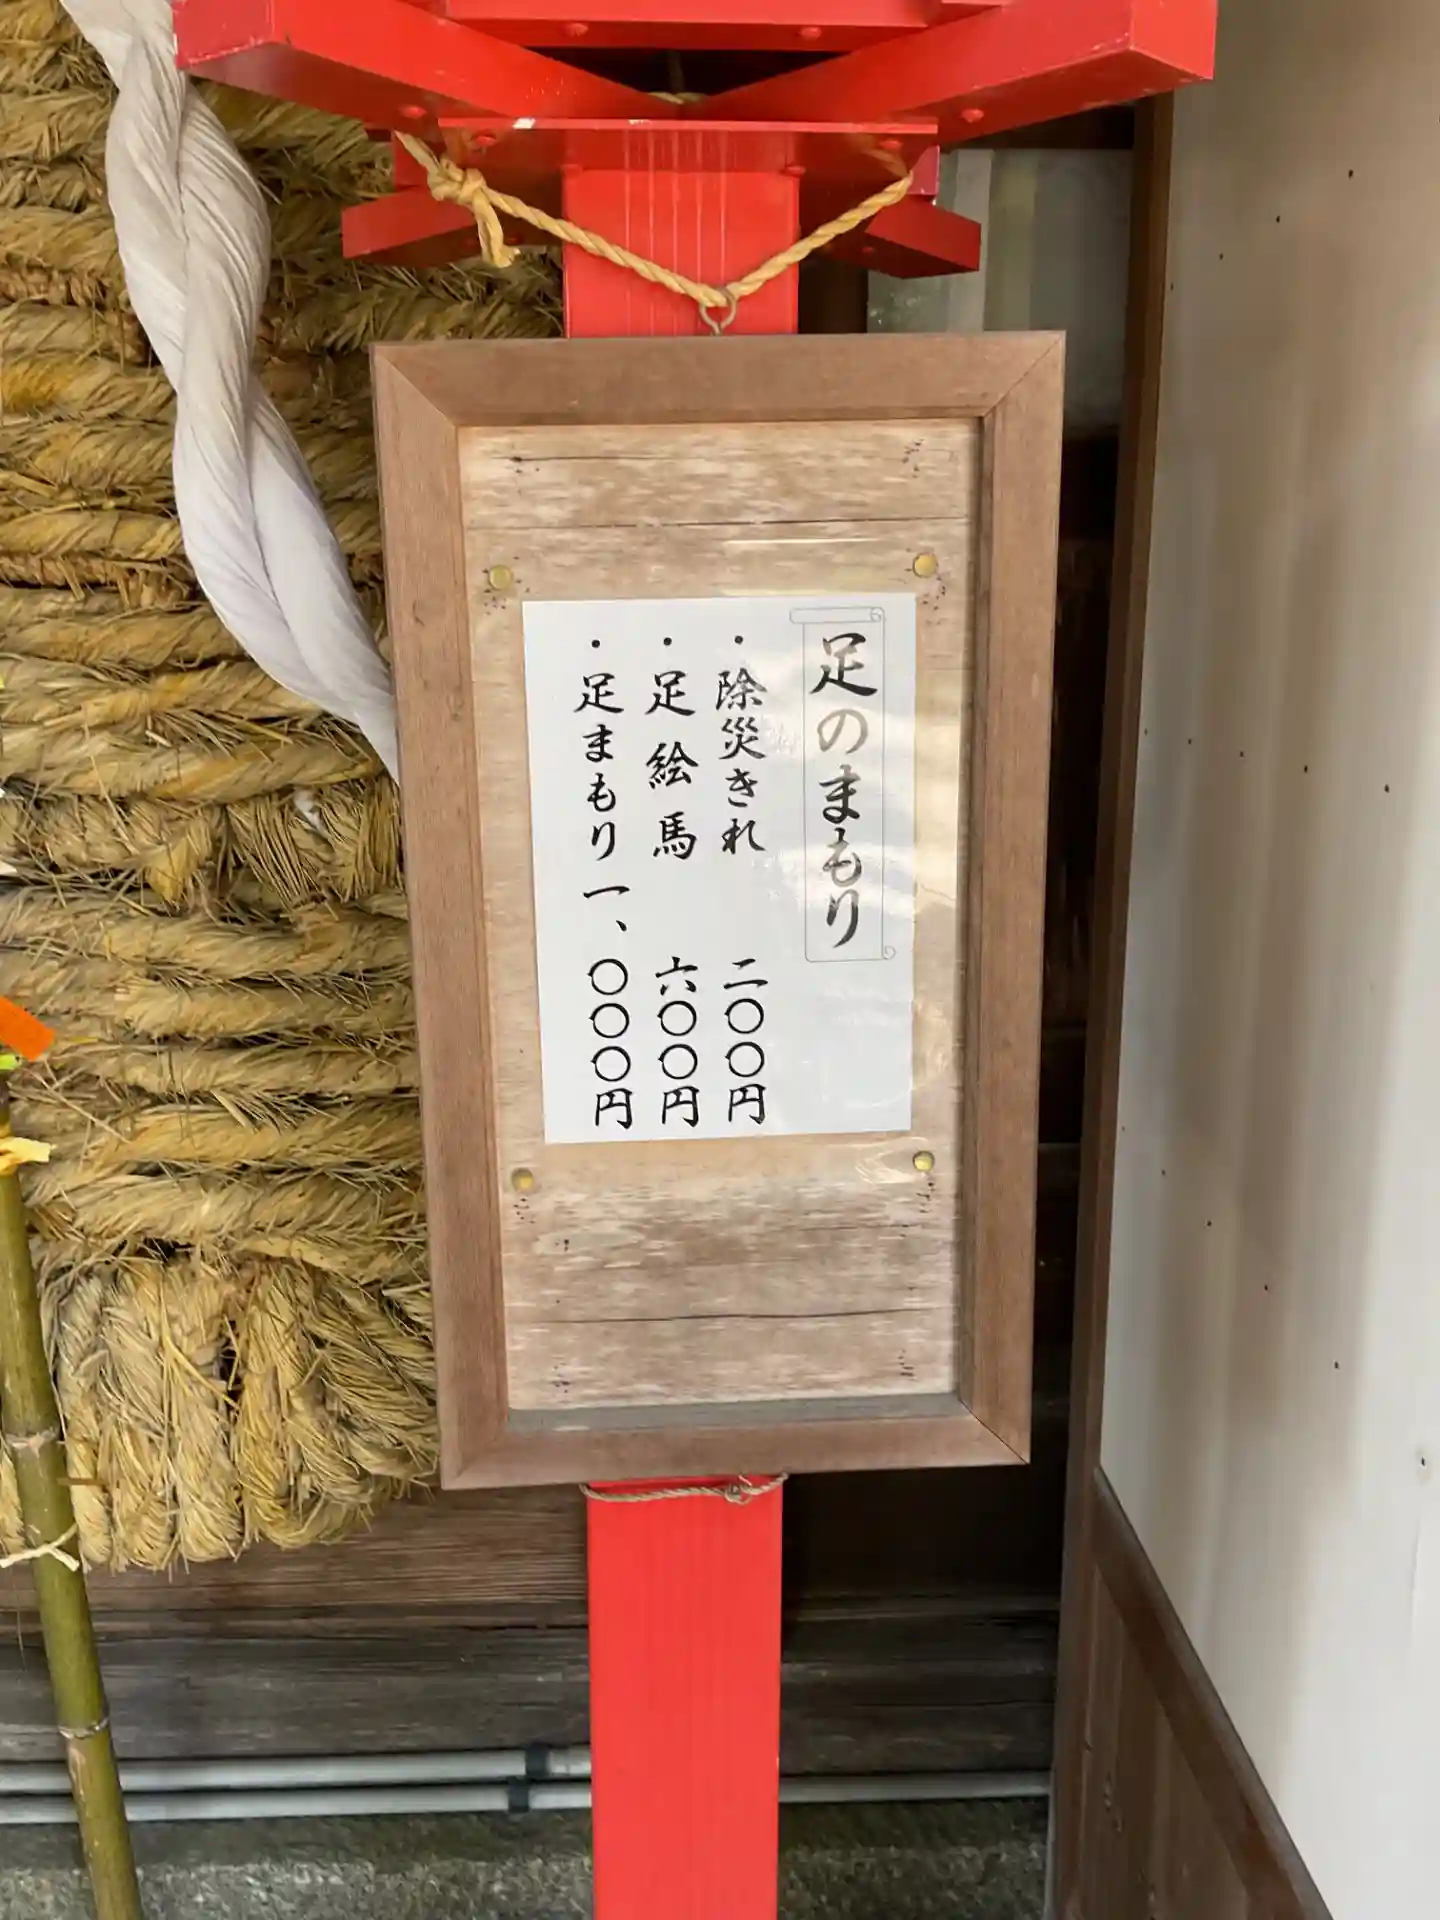 足のまもり
・除災きれ 二〇〇円
・足絵馬 六〇〇円
・足まもり 一、〇〇〇円